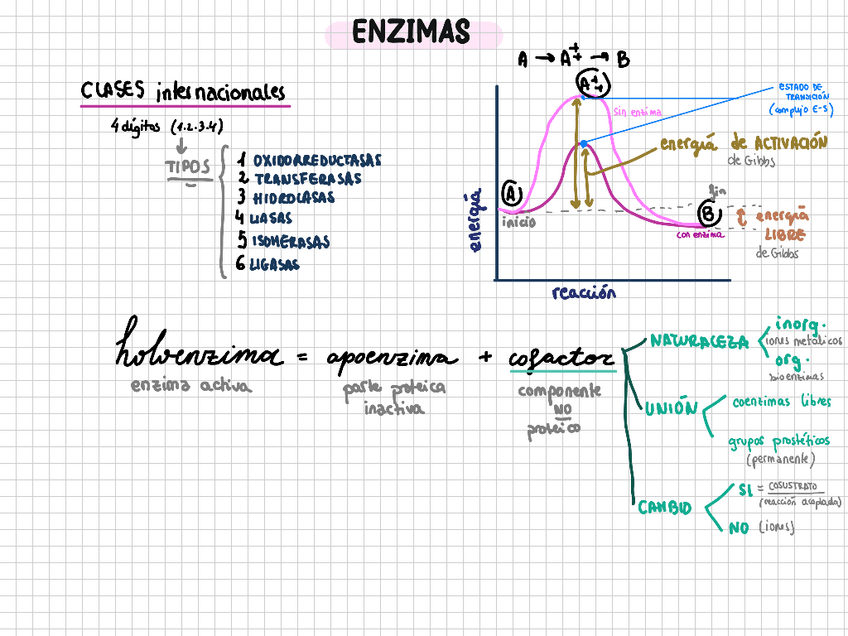 ENZIMAS
CLASES internacionales
4 dígitos (1.2.3.4)
TIPOS
1 OXIDOAREDUCTASAS
2 TRANSFERASAS
3 HIDROLASAS
4 LIASAS
5 ISOMERASAS
6 LIGASAS
A → A‡ → B
A‡
ESTADO DE
TRANSICIÓN
(complejo E-S)
sin enzima
energía de ACTIVACIÓN
de Gibbs
A
inicio
fin
B
con enzima
energía
LIBRE
de Gibbs
energía
reacción
holoenzima = apoenzima + cofactor
enzima activa
parte proteica
inactiva
componente
NO
proteico
NATURALEZA
inorg.
iones metálicos
org.
bioenzimas
UNIÓN
coenzimas libres
grupos prostéticos
(permanente)
CAMBIO
SI = COSUSTRATO
(reacción acoplada)
NO (iones)